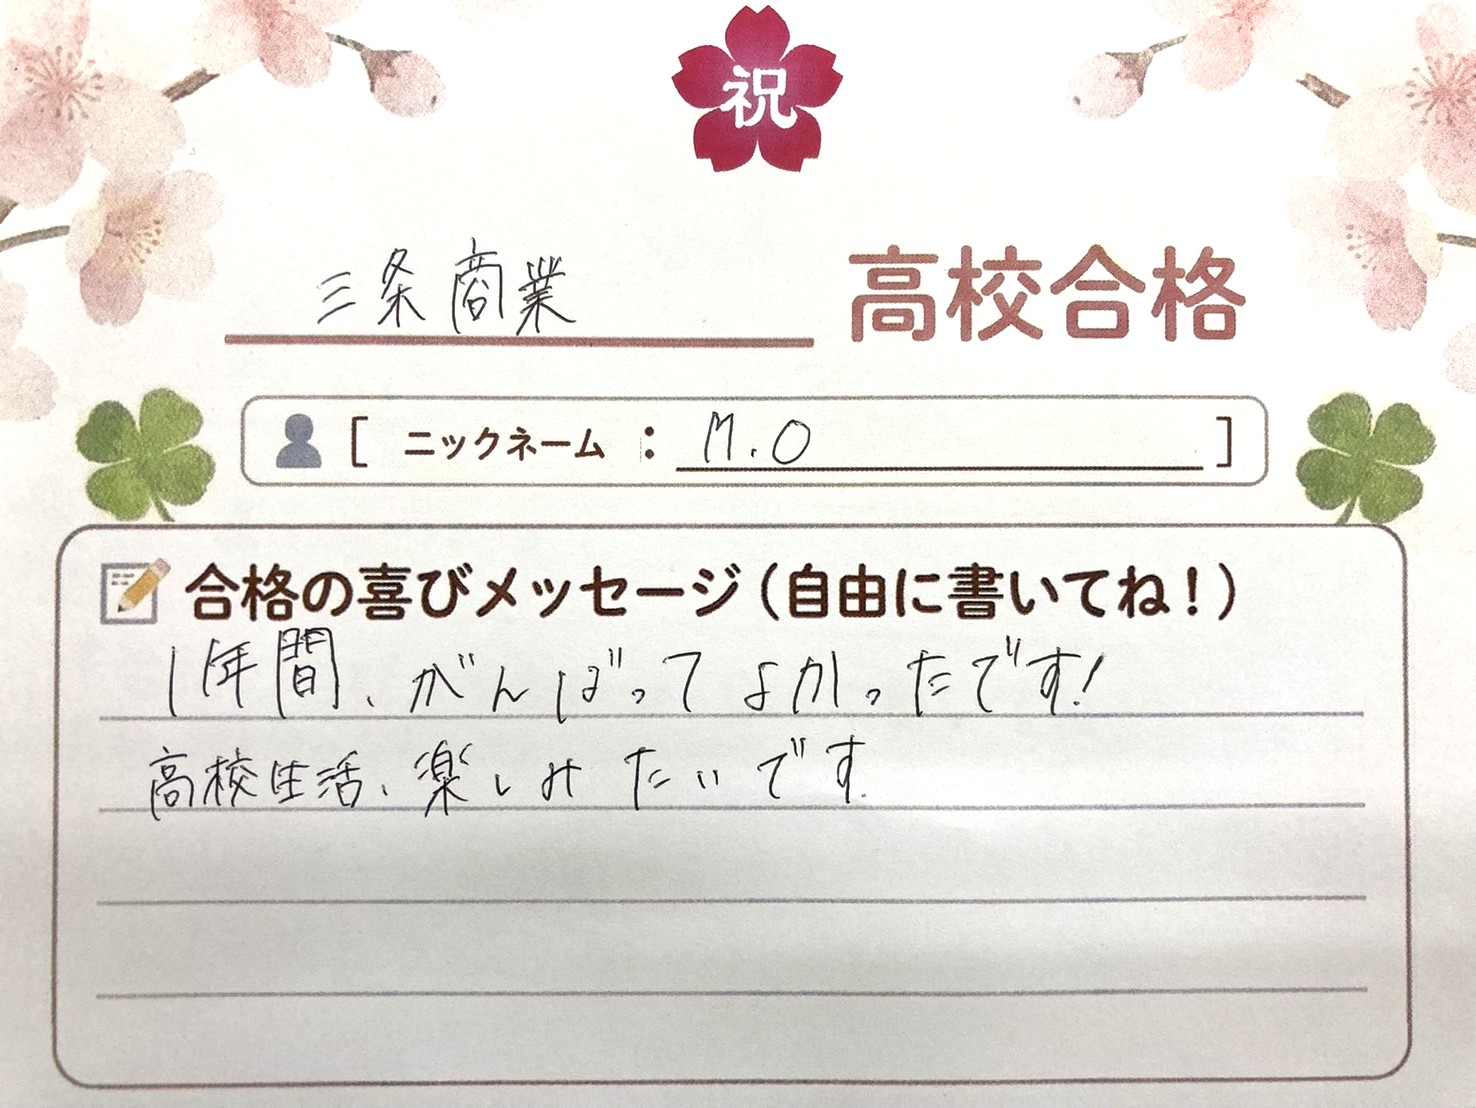 祝
三条商業 高校合格
[ ニックネーム : M.O ]
合格の喜びメッセージ(自由に書いてね!)
1年間、がんばってよかったです!
高校生活、楽しみたいです.